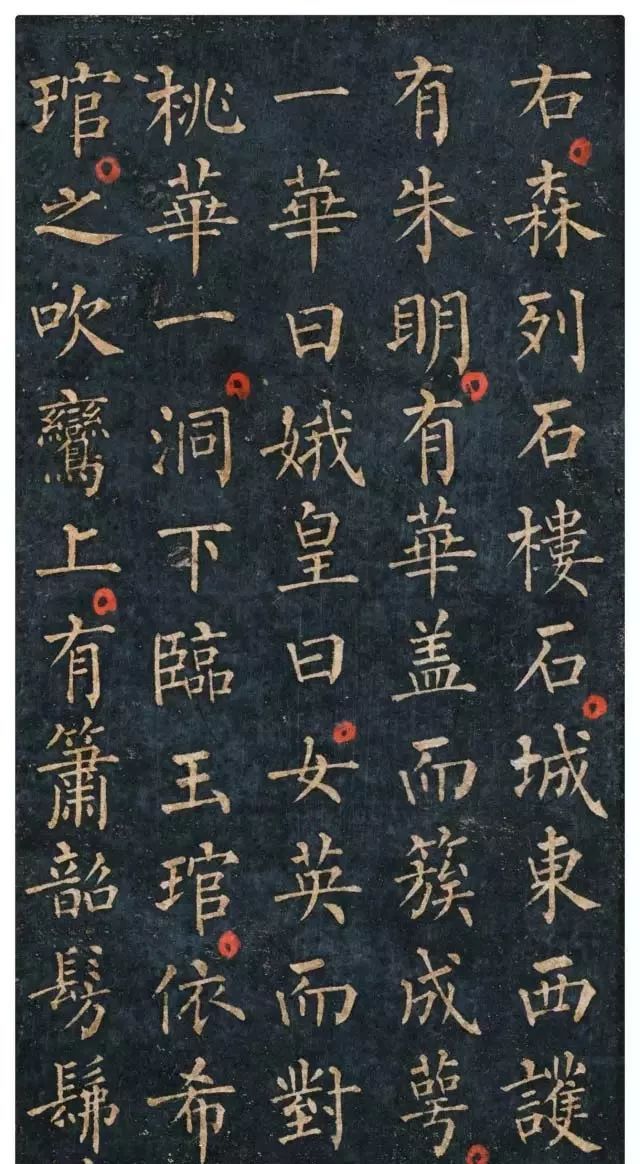 右森列石樓石城東西護
有朱明有華盖而簇成萼
一華曰娥皇曰女英而對
桃華一洞下臨玉琯依希
琯之吹鸞上有簫韶髣髴